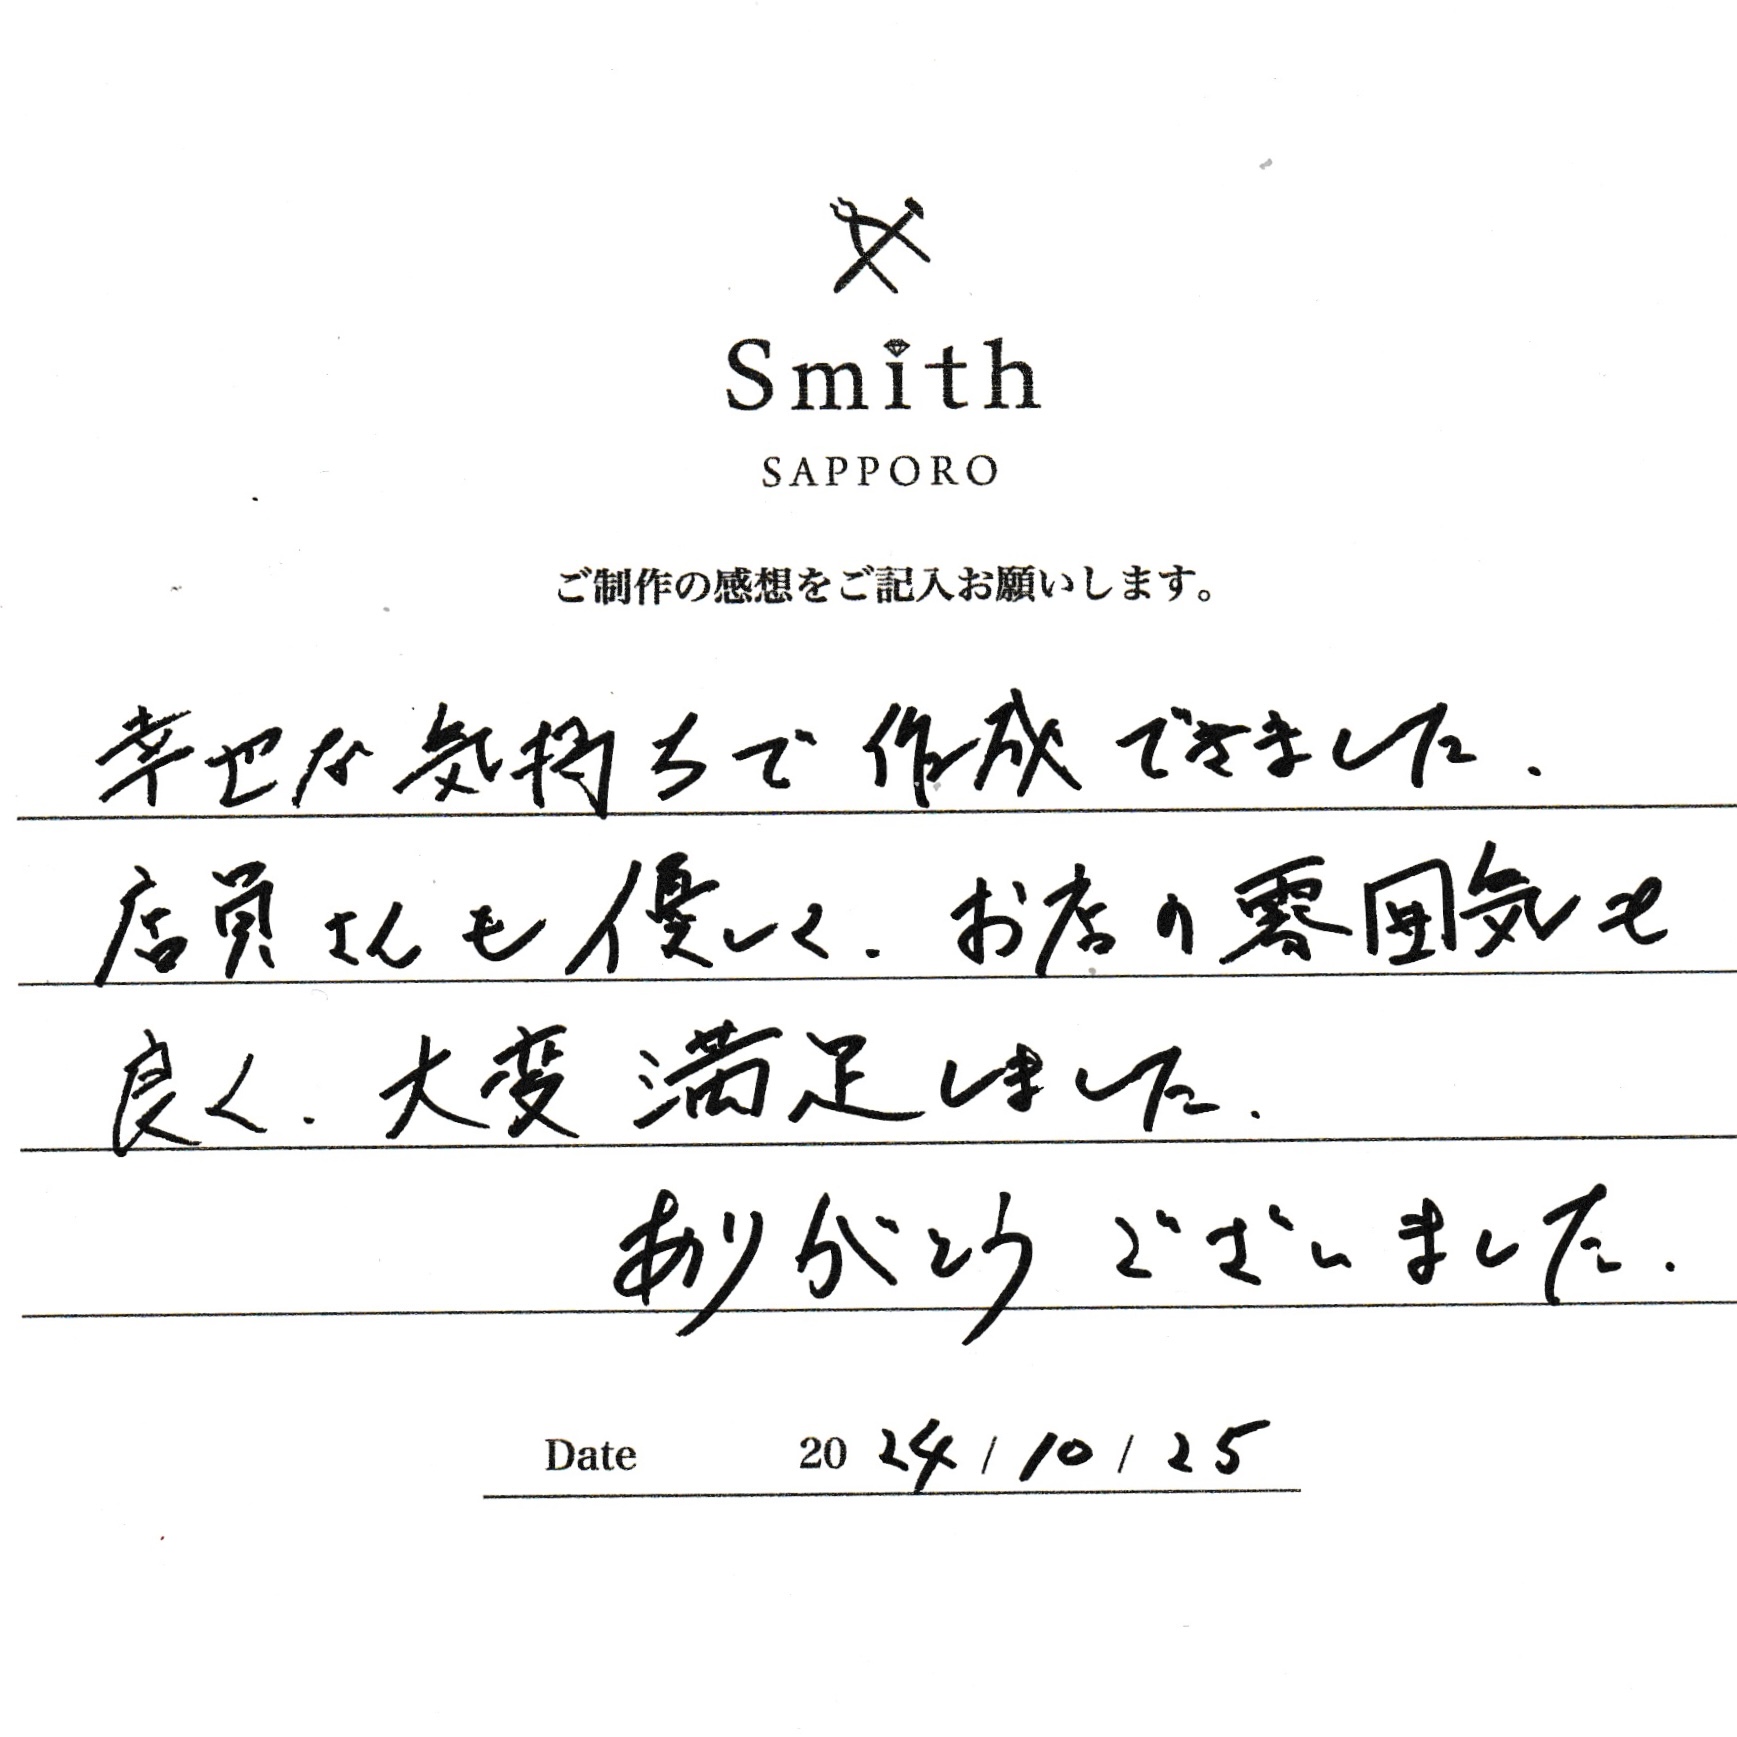 Smith
SAPPORO
ご制作の感想をご記入お願いします。
幸せな気持ちで作成できました.
店員さんも優しく.お店の雰囲気も
良く.大変満足しました.
ありがとうございました.
Date 2024/10/25